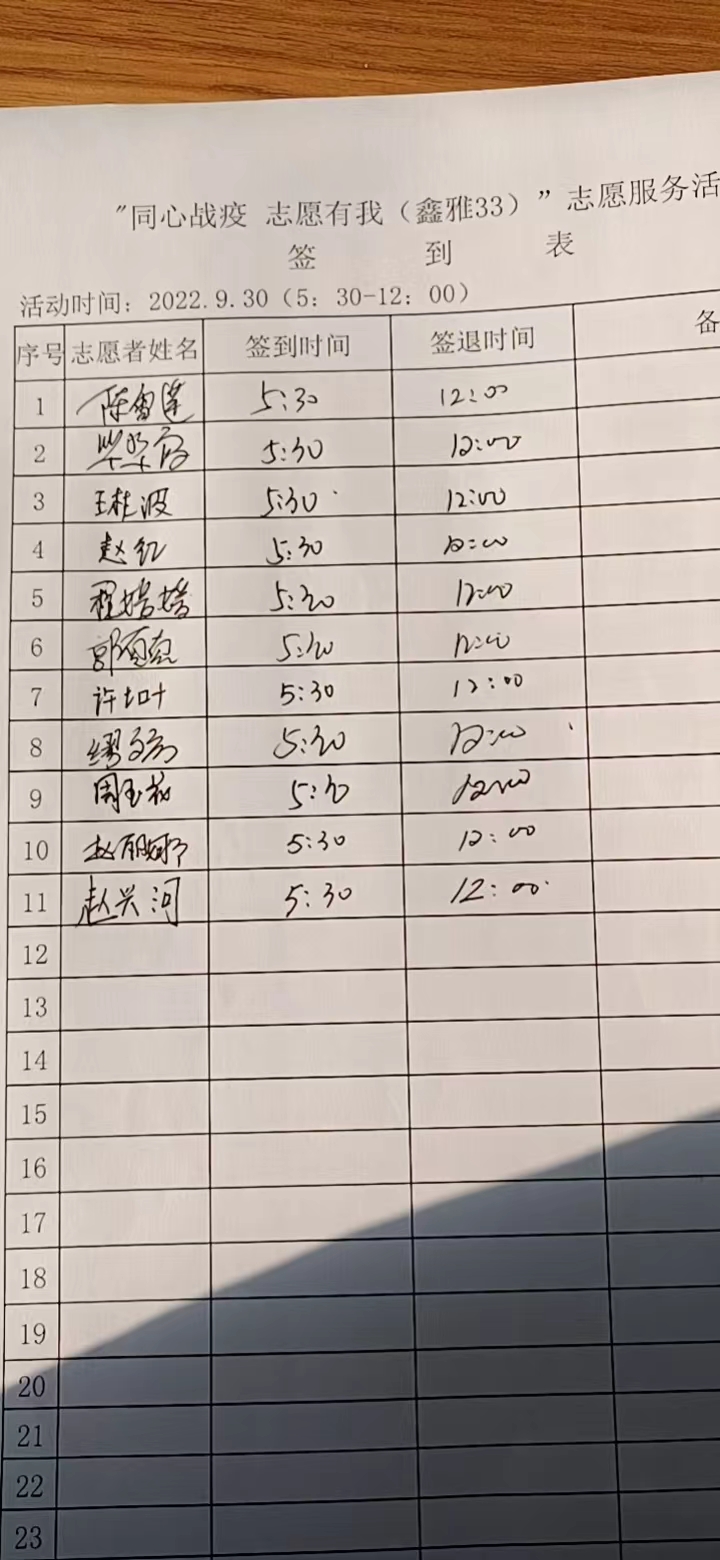 "同心战疫 志愿有我（鑫雅33）”志愿服务活
签 到 表
活动时间：2022.9.30（5：30-12：00）
序号 志愿者姓名 签到时间 签退时间 备
1 陈雪莲 5:30 12:00
2 5:30 12:00
3 王桂波 5:30 12:00
4 赵红 5:30 12:00
5 程婧婧 5:30 12:00
6 郭 5:30 12:00
7 许叶 5:30 12:00
8 缪 5:30 12:00
9 周玉 5:30 12:00
10 赵丽娜 5:30 12:00
11 赵兴河 5:30 12:00
12
13
14
15
16
17
18
19
20
21
22
23